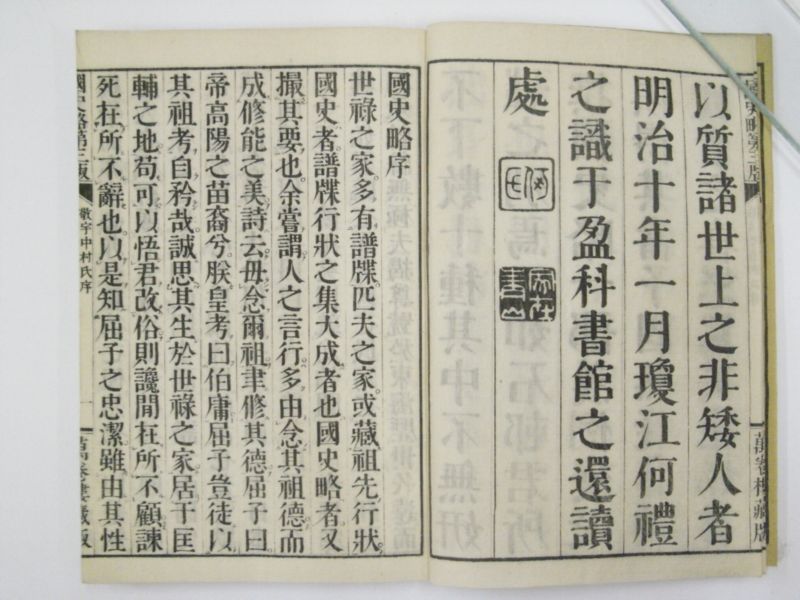 以質諸世上之非矮人者
明治十年一月瓊江何禮
之識于盈科書館之還讀
處
國史略序
世祿之家多有譜牒匹夫之家或藏祖先行狀
國史者譜牒行狀之集大成者也國史略者又
撮其要也余嘗謂人之言行多由念其祖德而
成修能之美詩云毋念爾祖聿修其德屈子曰
帝高陽之苗裔兮朕皇考曰伯庸屈子豈徒以
其祖考自矜哉誠思其生於世祿之家居于匡
輔之地苟可以悟君改俗則讒閒在所不顧諫
死在所不辭也以是知屈子之忠潔雖由其性
國史略第三版 敬宇中村氏序 一